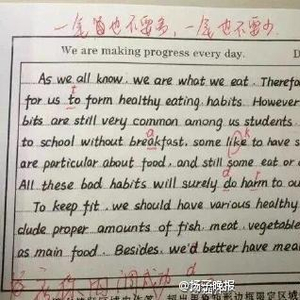 一尾首也不要多，一尾也不要少
We are making progress every day. D
As we all know, we are what we eat. Therefo
for us to form healthy eating habits. However
bits are still very common among us students.
to school without breakfast, some like to have s
are particular about food, and still some eat or d
All these bad habits will surely do harm to our
To keep fit, we should have various healthy
clude proper amounts of fish, meat, vegetable
as main food. Besides, we'd better have mea
@扬子晚报